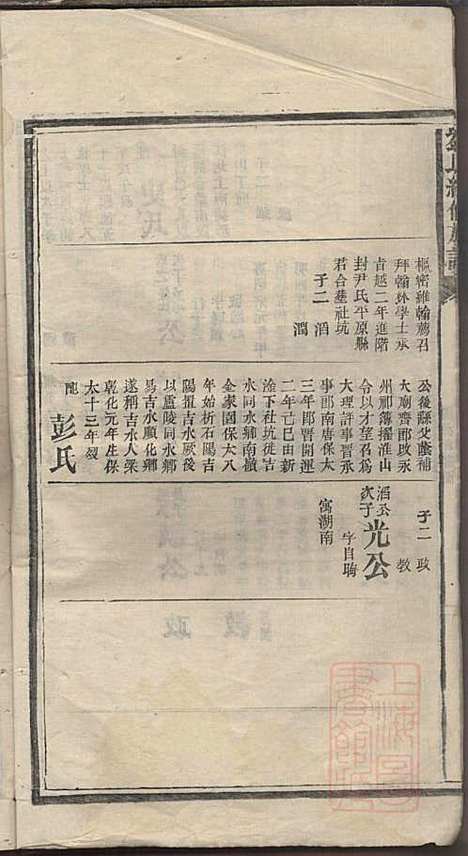 樞密雖翰薦召
拜翰林學士承
旨越二年進階
封尹氏平原縣
君合墓社坑
子二 滔
濶
公後縣父蔭補
太廟齊郎改永
州那簿擢淮山
令以才望召爲
大理評事晋承
事郎南唐保大
三年即晋開運
二年乙巳由新
淦下社坑徙吉
水同水鄉南嶺
金家園保大八
年始析石陽吉
陽置吉水厥後
以廬陵同水鄉
易吉水順化鄉
遂稱吉水人梁
乾化元年生保
大十三年歿
配 彭氏
子二 政
教
滔公次子 光公
字自昫
寓湖南
上海圖書館藏